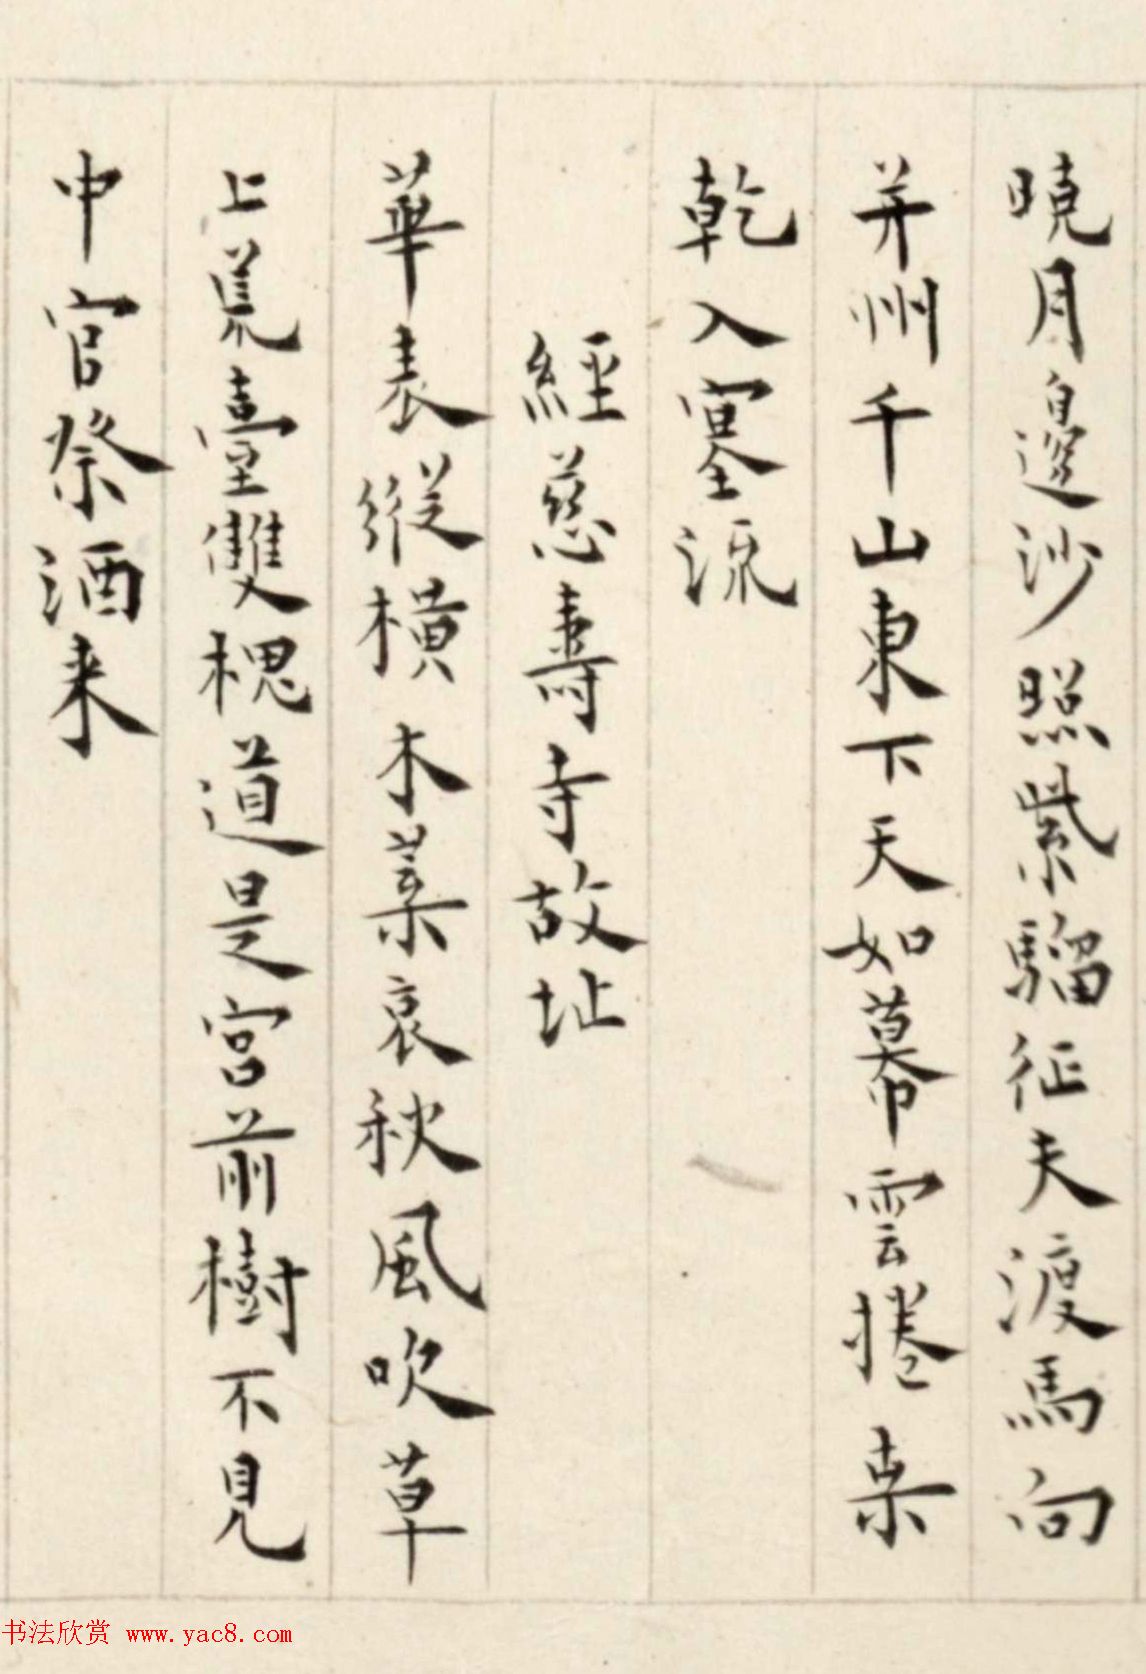 曉月邊沙照紫騮征夫渡馬向
并州千山東下天如幕雲捲桑
乾入塞流
經慈壽寺故址
華表縱橫木葉哀秋風吹草
上荒臺雙槐道是宮前樹不見
中官祭酒來
书法欣赏 www.yac8.com